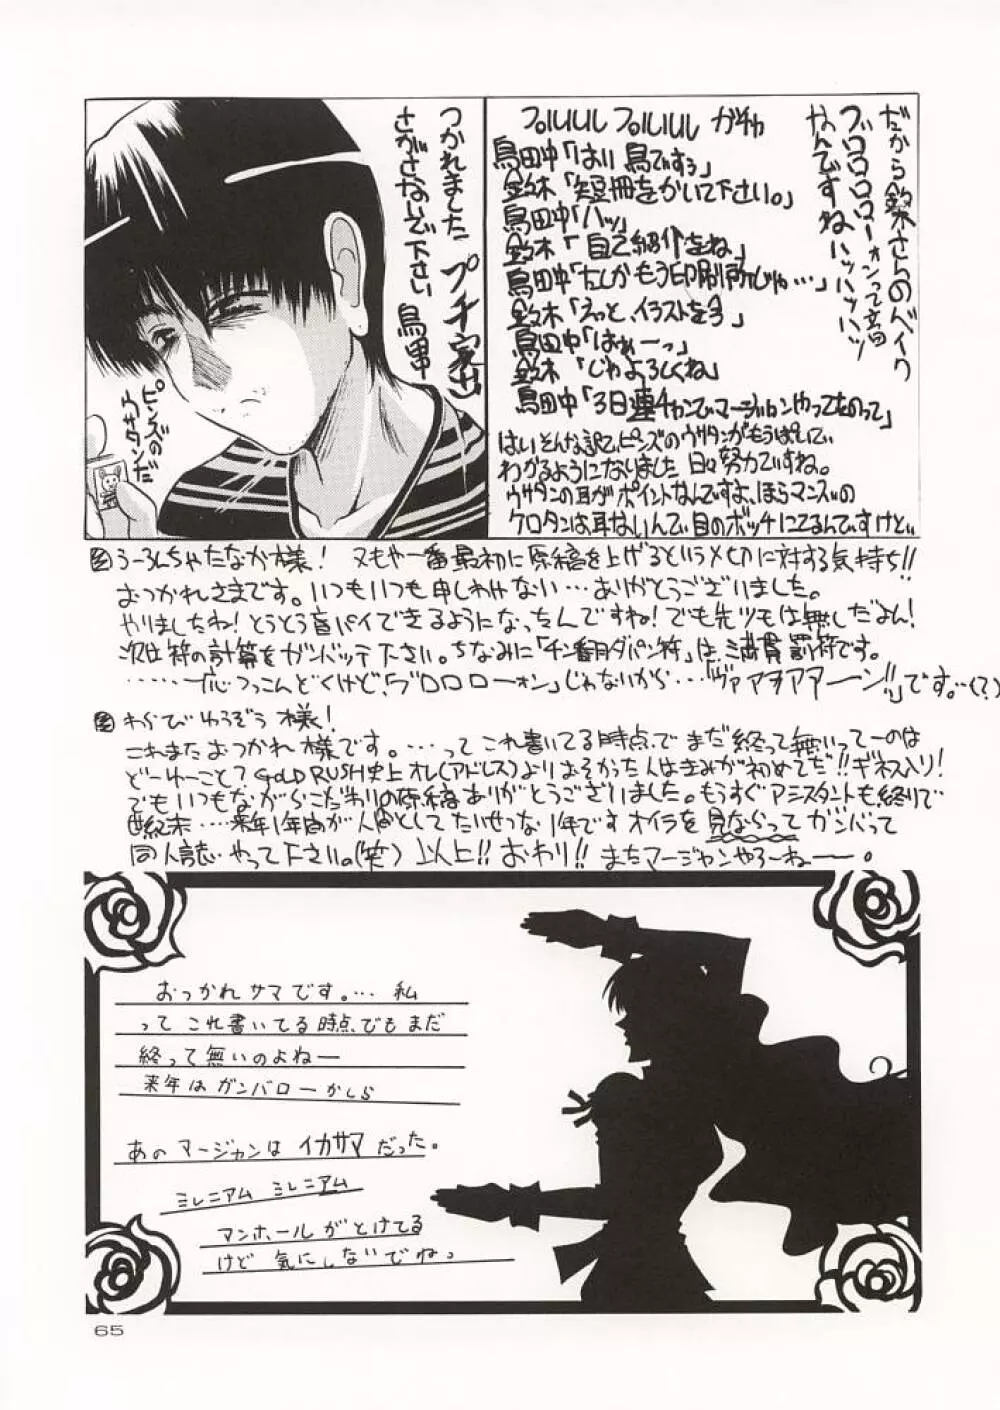 だから鈴木さんのベイク
ブロロロローォンって言田
なんですねハッハッハッ
プルルルル プルルルル ガチャ
鳥田中「はい 鳥ですぅ」
鈴木「短冊をかいて下さい。」
鳥田中「ハッ」
鈴木「自己紹介をね」
鳥田中「たしかもう印刷所じゃ…」
鈴木「えっと、イラストを今」
鳥田中「はぁーっ」
鈴木「じゃよろしくね」
鳥田中「3日連チャンでマージャンやってたのって」
はいそんな訳で、ピンズのウサタンがもうぱいで
わかるようになりました 日々努力ですね。
ウサタンの耳がポイントなんですよ、ほらマンズの
ケロタンは耳ないんで目のボッチにてるんですけど
つかれました
さがさないで下さい 鳥田中
プチ家出
ピンズの
ウサタンだ
うーろんちゃたなか様! 又もや一番最初に原稿を上げるという〆切に対する気持ち!!
おつかれさまです。いつもいつも申しわけない…ありがとうございました。
やりましたね!とうとう盲パイできるようになっちんですね!でも先ツモは無しだよん!
次は符の計算をガンバッテ下さい。ちなみに「チン番月ダパン符」は、満貫罰符です。
……一応つっこんどくけど、「ブロロロローォン」じゃないから…「ヴァアヲアアーン!!」です。…(?)
わらびゆうぞう様!
これまたおつかれ様です。…って これ書いてる時点でまだ終って無いってーのは
どーゆーこと? GOLD RUSH史上オレ(アドレス)よりおそかった人はきみが初めてだ!!ギネス入り!
でもいつもながらこだわりの原稿ありがとうございました。もうすぐアシスタントも終りで
西紀末…来年1年間が人間としてたいせつな1年です オイラを見ならってガンバって
同人誌やって下さい。(笑)以上!!おわり!! またマージャンやろーねー。
おつかれサマです。… 私
って これ書いてる時点でもまだ
終って無いのよねー
来年はガンバローかしら
あのマージャンはイカサマだった。
ミレニアム ミレニアム
マンホールがとけてる
けど 気にしないでねっ
65